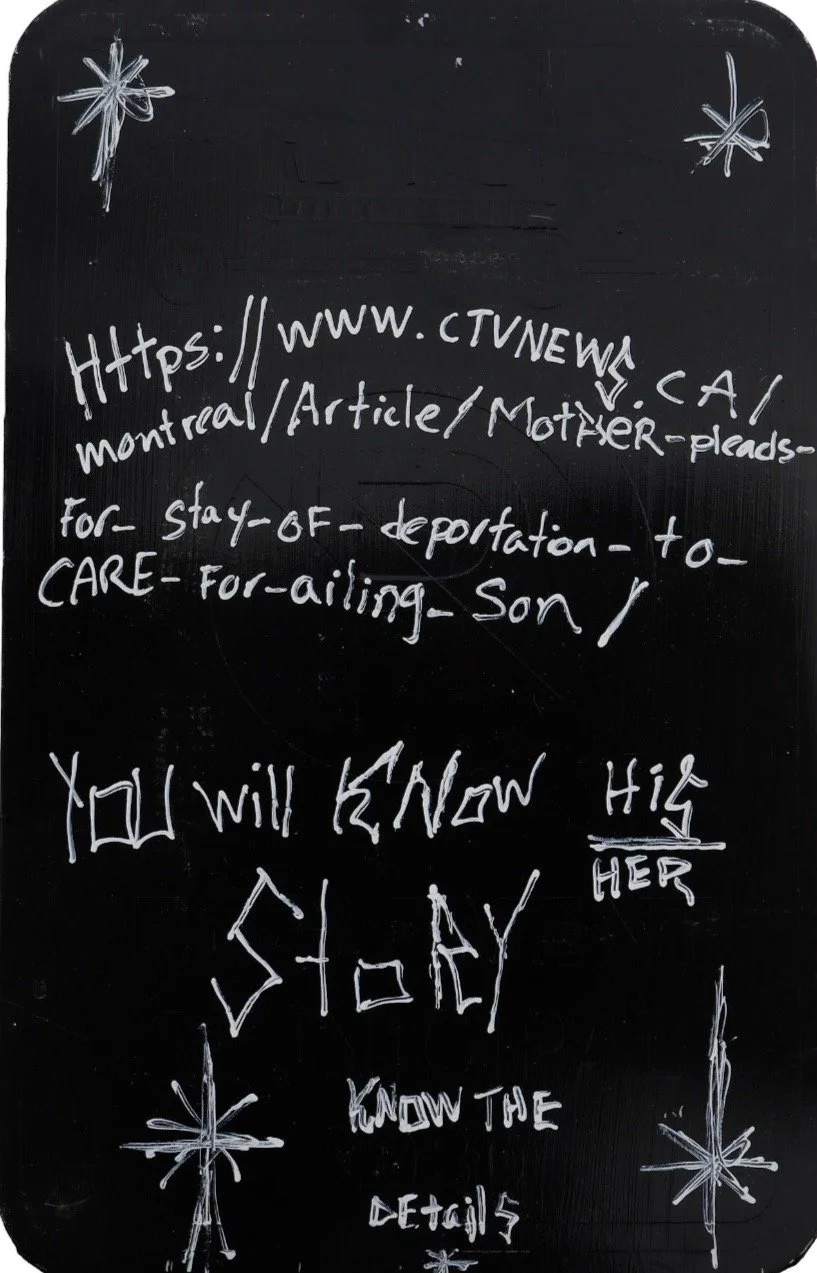 Https://www.CTVNEWS.CA/
montreal/Article/MotHER-pleads-
For-stay-OF-deportation-to-
CARE-For-ailing-Son/
YOU will KNow HiS
HER
StoRY
KNOW THE
DEtails